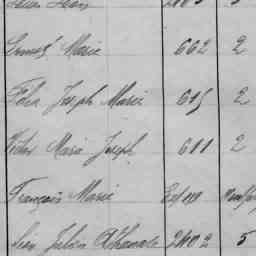 Jean
Ernest Marie 662 2
Joseph Marie 615 2
Victor Marie Joseph 611 2
François Marie
Jean Julien Athanase 2402 5